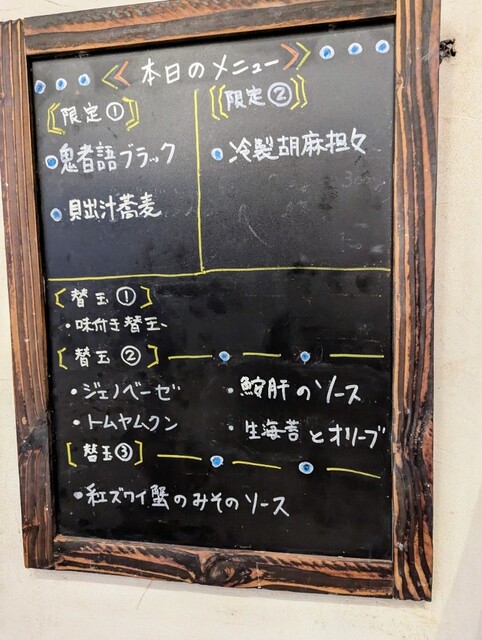 本日のメニュー
限定①
限定②
鬼者語ブラック
冷製胡麻担々
貝出汁蕎麦
替玉①
・味付き替玉
替玉②
・ジェノベーゼ
・鮟肝のソース
・トムヤムクン
・生海苔とオリーブ
替玉③
・紅ズワイ蟹のみそのソース